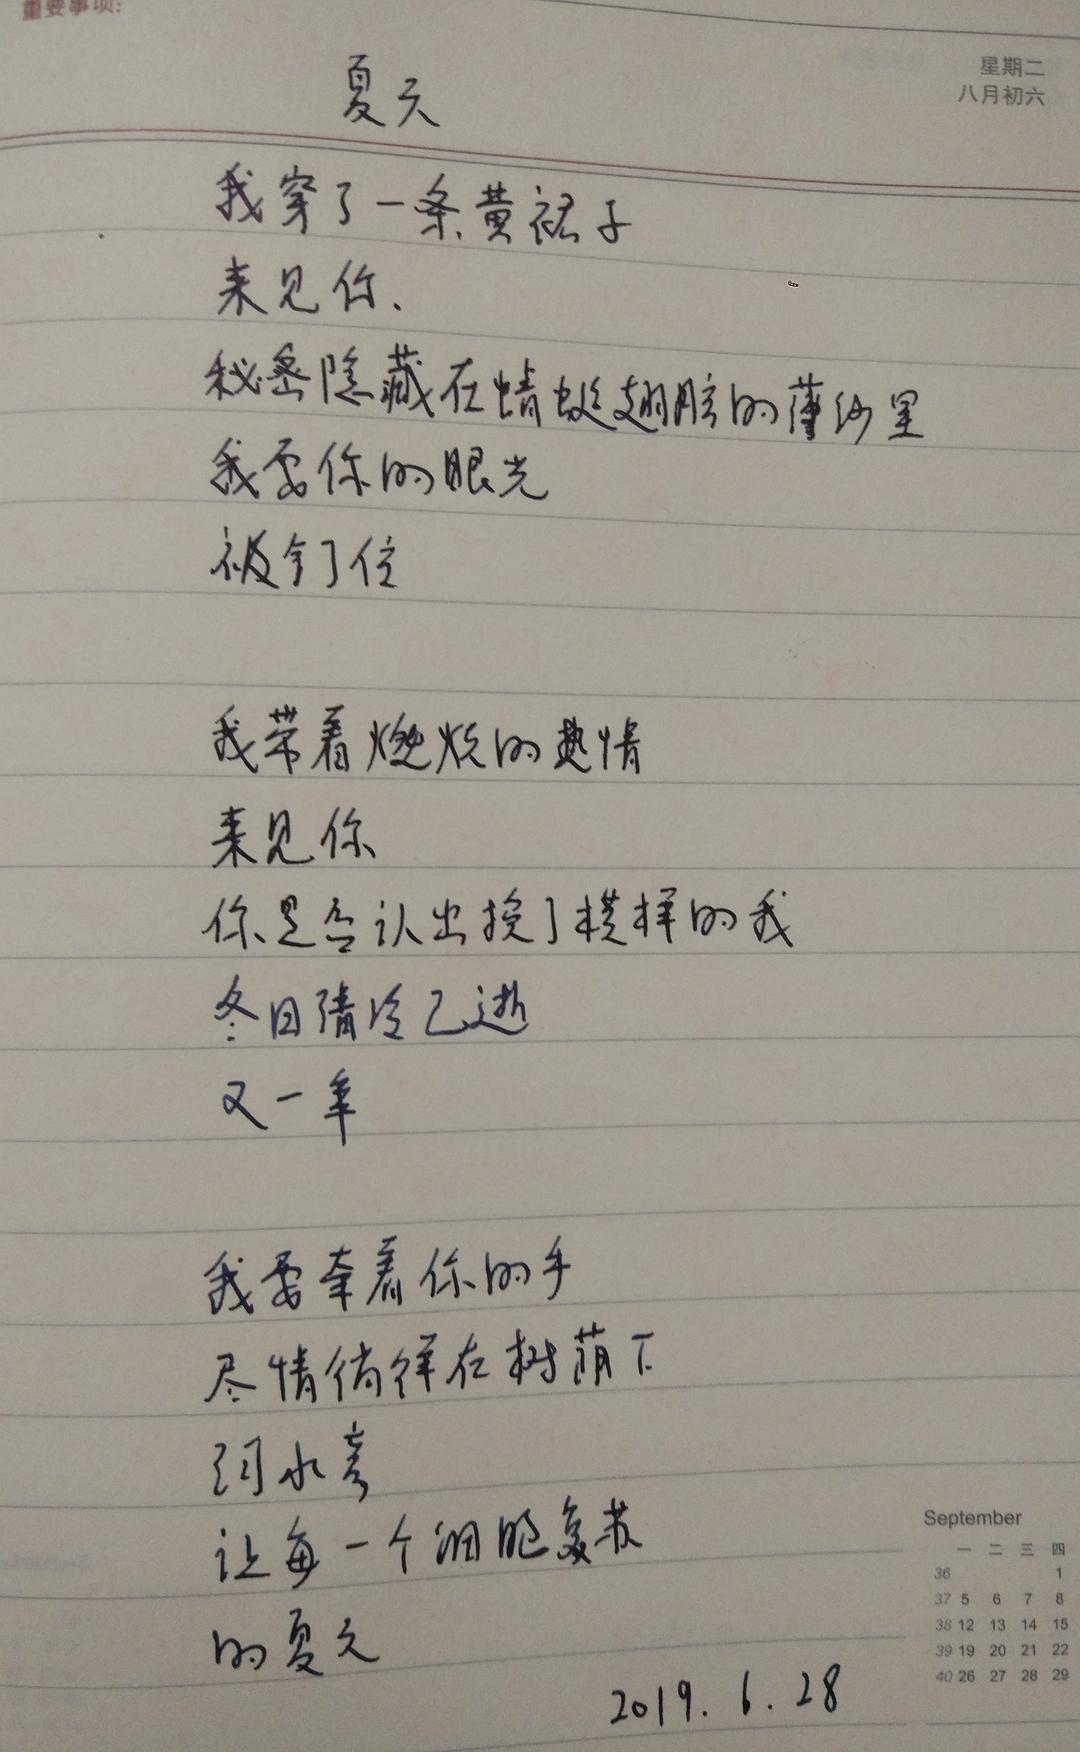 重要事项:
星期二
八月初六
夏天
我穿了一条黄裙子
来见你.
秘密隐藏在蜻蜓翅膀的薄纱里
我要你的眼光
被钉住
我带着燃烧的热情
来见你
你是否认出换了模样的我
冬日清冷已逝
又一年
我要牵着你的手
尽情徜徉在树荫下
河水旁
让每一个细胞复苏
的夏天
2019.6.28
September
一 二 三 四
36 1
37 5 6 7 8
38 12 13 14 15
39 19 20 21 22
40 26 27 28 29